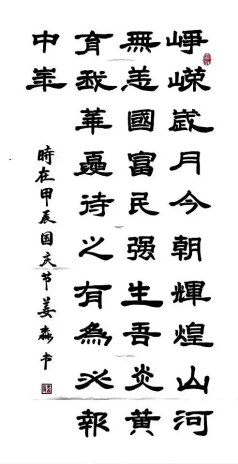 崢嶸歲月今朝輝煌山河
無恙國富民强生吾炎黄
育我華夏待之有為必報
中
時在甲辰国庆节姜书